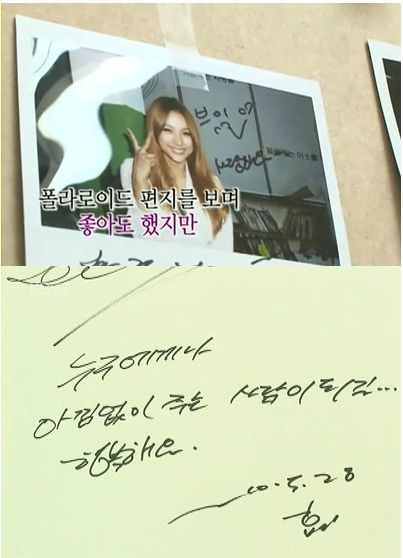 브이
사랑해요
폴라로이드 편지를 보며
좋아도 했지만
누구에게나
아낌없이 주는 사람이 되길...
행복해요.
10. 5. 28